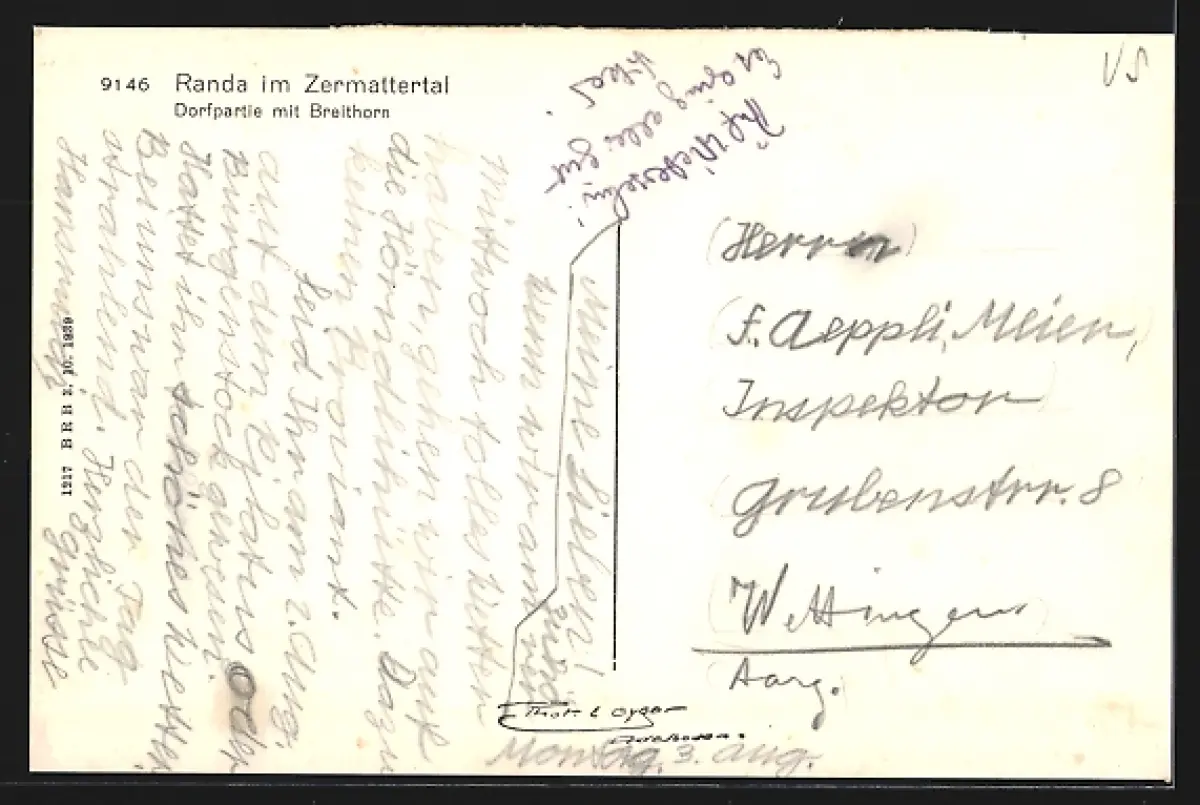 9146 Randa im Zermattertal
Dorfpartie mit Breithorn
VS
Es ging alles gut
Montag, 3. Aug.
Meine Lieben!
Wenn wir am
Mittwoch tolles Wetter
haben, gehen wir auf
die Hörndlihütte. Dazu
keinen Proviant.
Seid Ihr am 2. Aug.
auf dem Pilatus oder
Bürgenstock gewesen.
Hattet ihr schönes Wetter.
Bei uns war der Tag
strahlend. Herzliche
Grüsse
(Herrn)
F. Aeppli, Meier,
Inspektor
Grubenstrr. 8
Wettingen
Aarg.
Phot. E. Gyger
Adelboden.
1217 BRB 3. 10. 1939